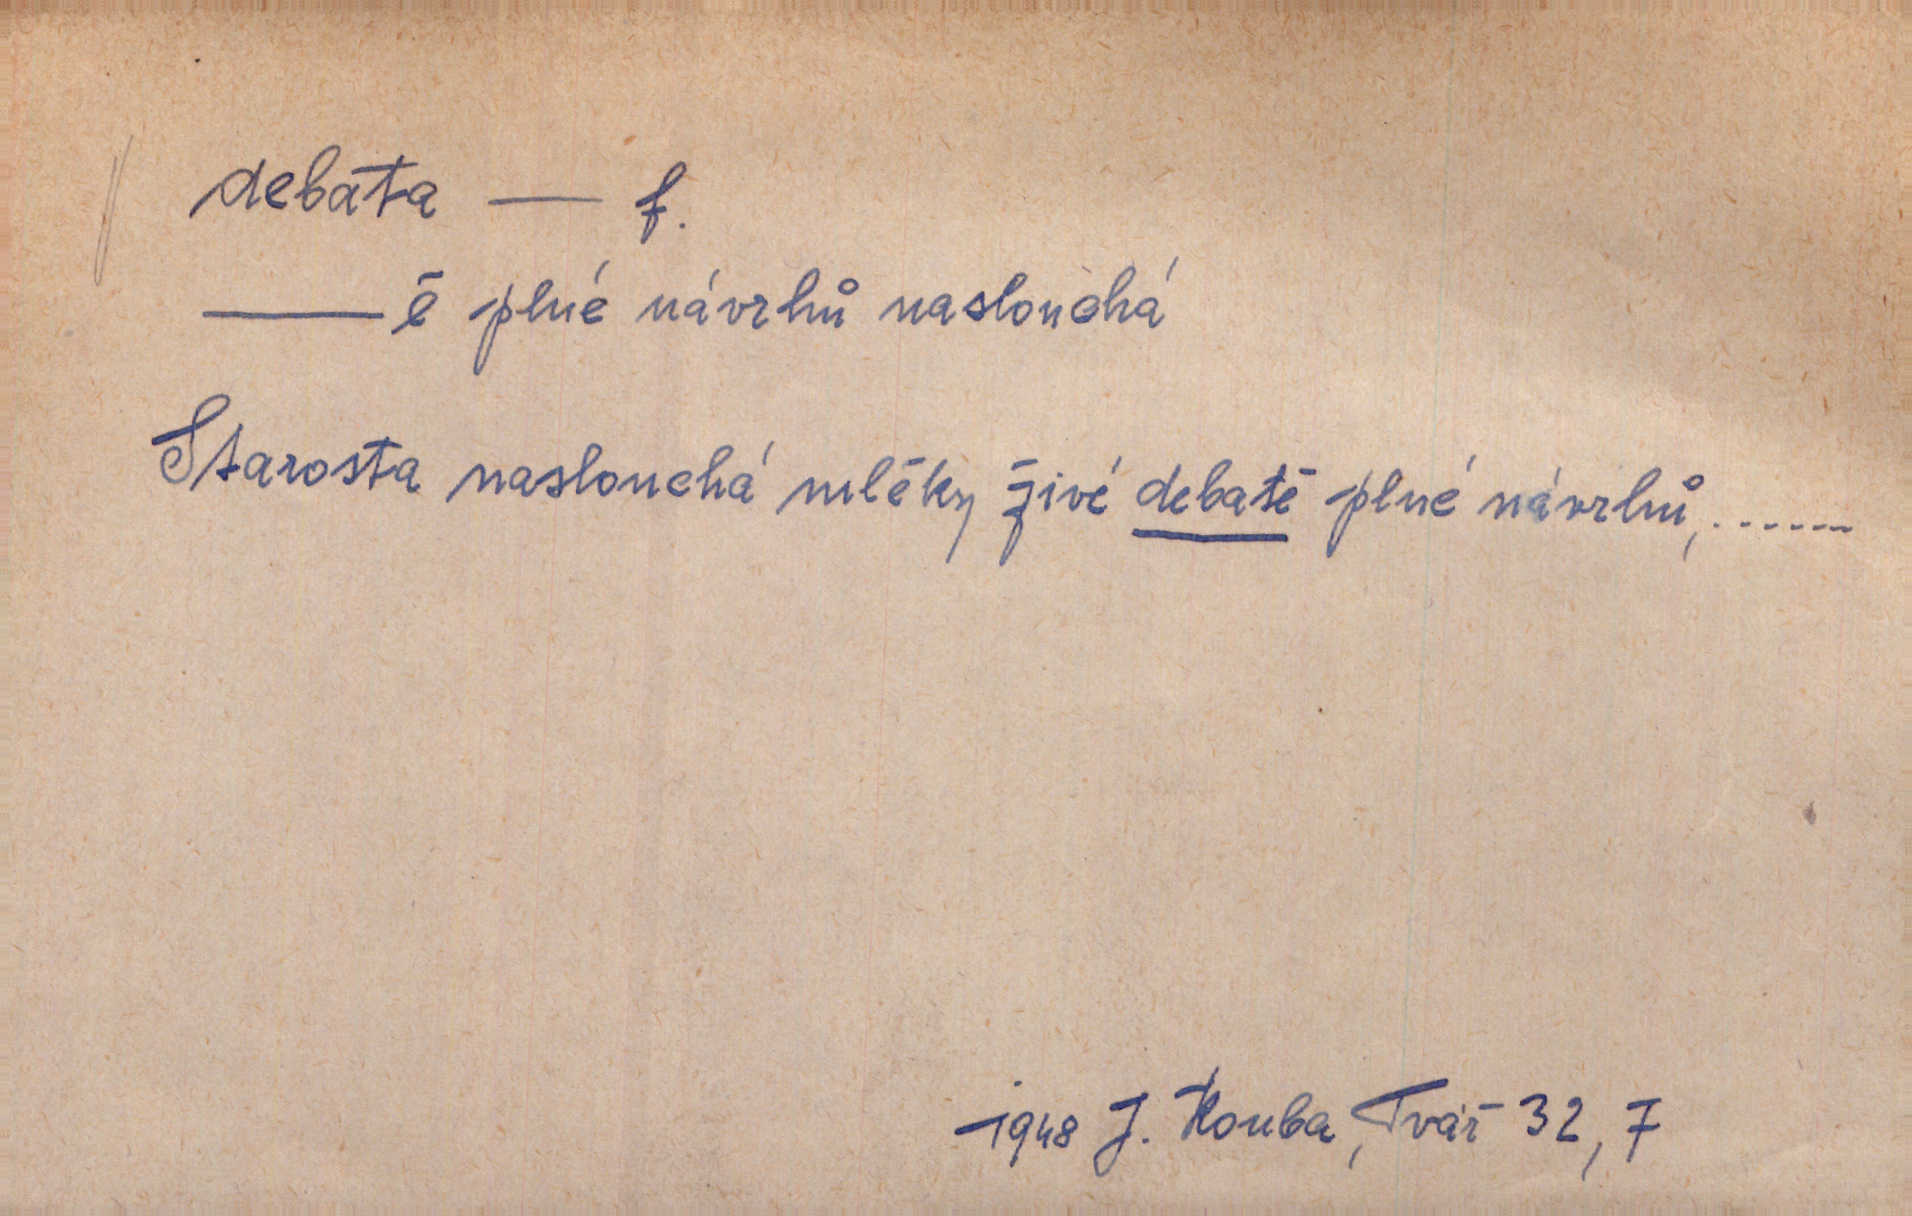 debata — f.
——ě plné návrhů naslouchá
Starosta naslouchá mlčky živé debatě plné návrhů, .......
1948 J. Kouba, Tvář 32, 7